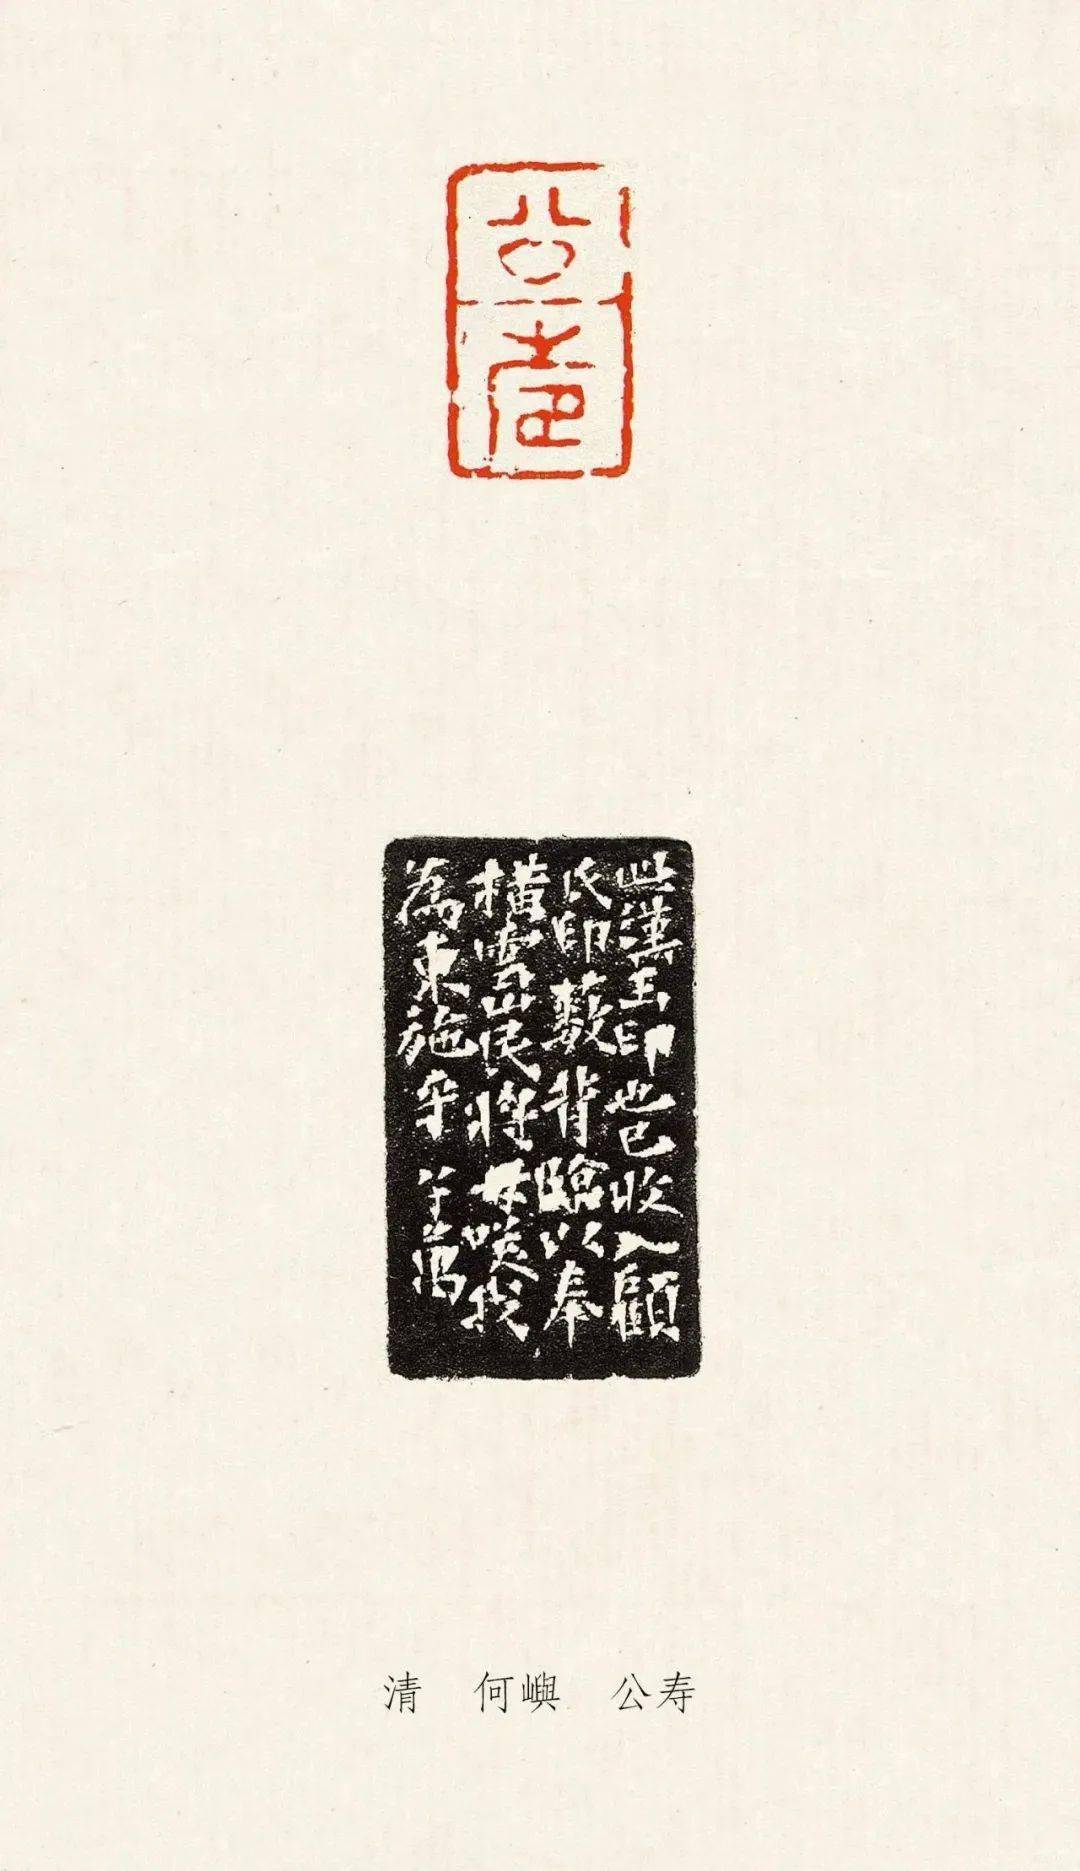 公壽
此漢玉印也已收入顧
氏印藪背臨以奉
橫雲山民將毋咲我
為東施乎 子萬
清 何嶼 公寿